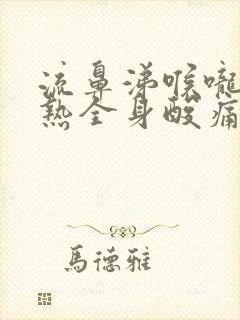 流鼻涕喉嚨
熱全身酸痛
馬德雅